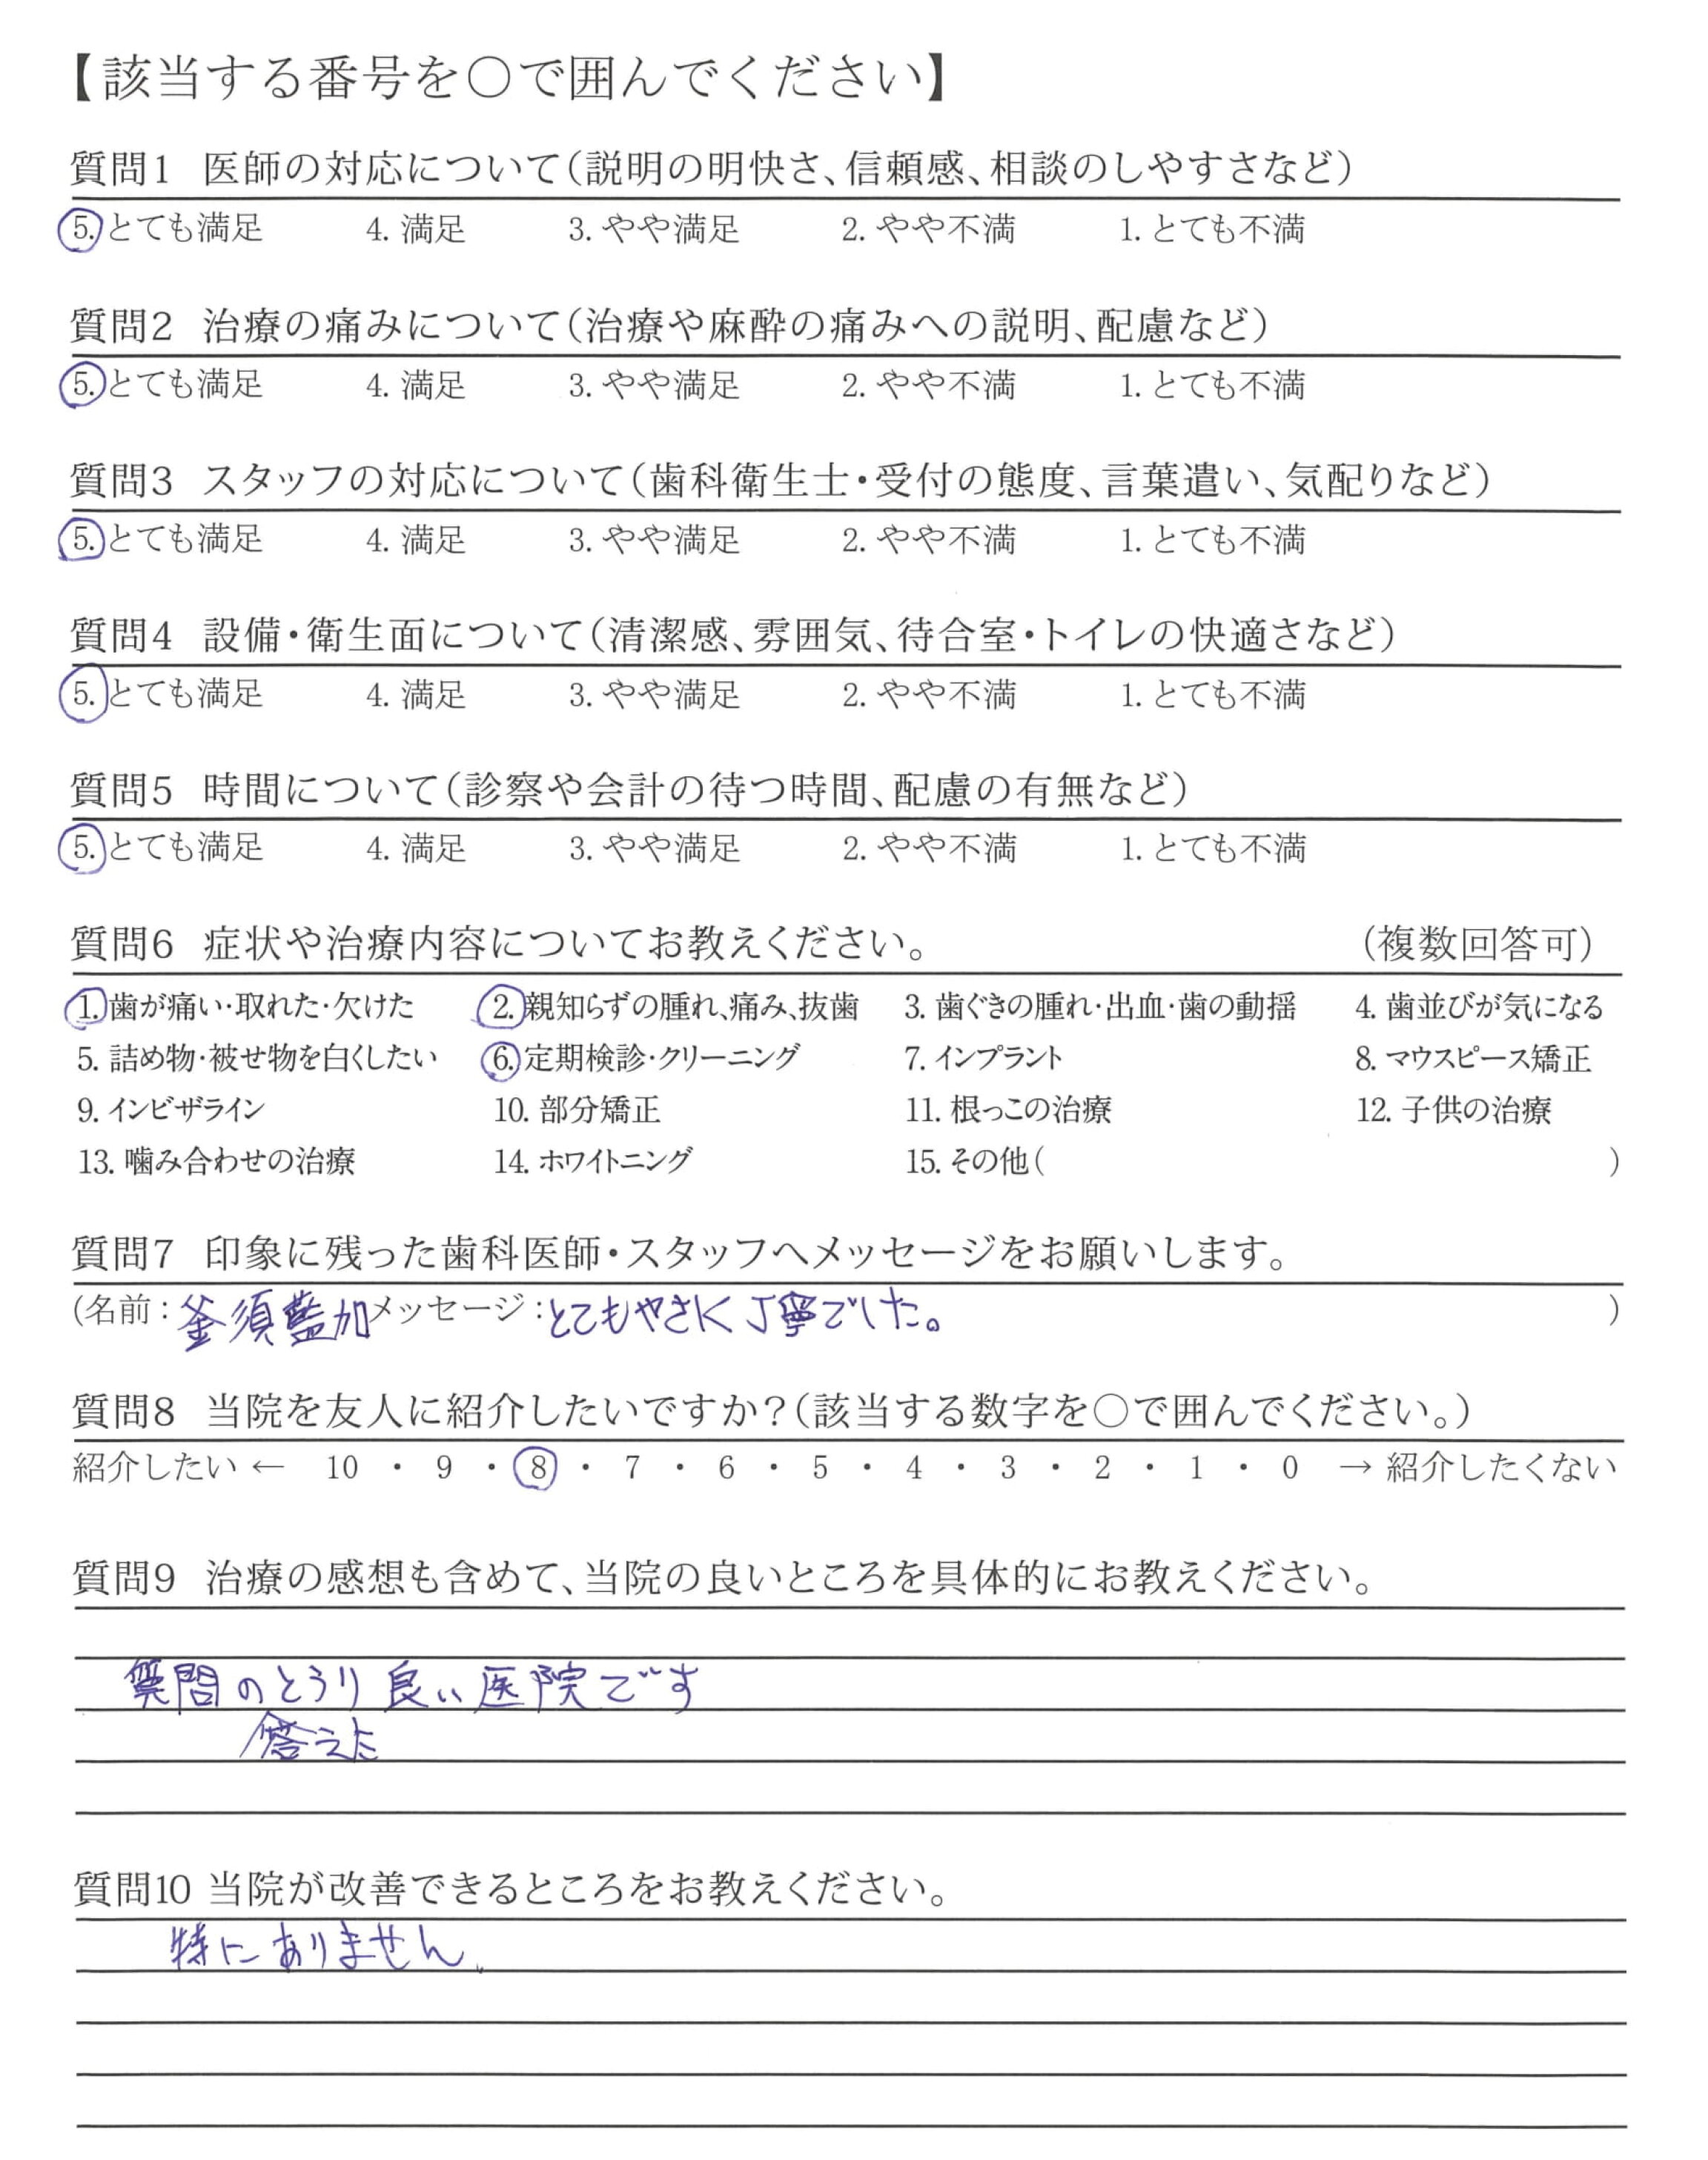 【該当する番号を○で囲んでください】
質問1 医師の対応について(説明の明快さ、信頼感、相談のしやすさなど)
5. とても満足 4. 満足 3. やや満足 2. やや不満 1. とても不満
質問2 治療の痛みについて(治療や麻酔の痛みへの説明、配慮など)
5. とても満足 4. 満足 3. やや満足 2. やや不満 1. とても不満
質問3 スタッフの対応について(歯科衛生士・受付の態度、言葉遣い、気配りなど)
5. とても満足 4. 満足 3. やや満足 2. やや不満 1. とても不満
質問4 設備・衛生面について(清潔感、雰囲気、待合室・トイレの快適さなど)
5. とても満足 4. 満足 3. やや満足 2. やや不満 1. とても不満
質問5 時間について(診察や会計の待つ時間、配慮の有無など)
5. とても満足 4. 満足 3. やや満足 2. やや不満 1. とても不満
質問6 症状や治療内容についてお教えください。 (複数回答可)
1. 歯が痛い・取れた・欠けた 2. 親知らずの腫れ、痛み、抜歯 3. 歯ぐきの腫れ・出血・歯の動揺 4. 歯並びが気になる
5. 詰め物・被せ物を白くしたい 6. 定期検診・クリーニング 7. インプラント 8. マウスピース矯正
9. インビザライン 10. 部分矯正 11. 根っこの治療 12. 子供の治療
13. 噛み合わせの治療 14. ホワイトニング 15. その他( )
質問7 印象に残った歯科医師・スタッフへメッセージをお願いします。
(名前:釜須藍加メッセージ:とてもやさしく丁寧でした。 )
質問8 当院を友人に紹介したいですか?(該当する数字を○で囲んでください。)
紹介したい ← 10 ・ 9 ・ 8 ・ 7 ・ 6 ・ 5 ・ 4 ・ 3 ・ 2 ・ 1 ・ 0 → 紹介したくない
質問9 治療の感想も含めて、当院の良いところを具体的にお教えください。
質問のとうり良い医院です
答えた
質問10 当院が改善できるところをお教えください。
特にありません。